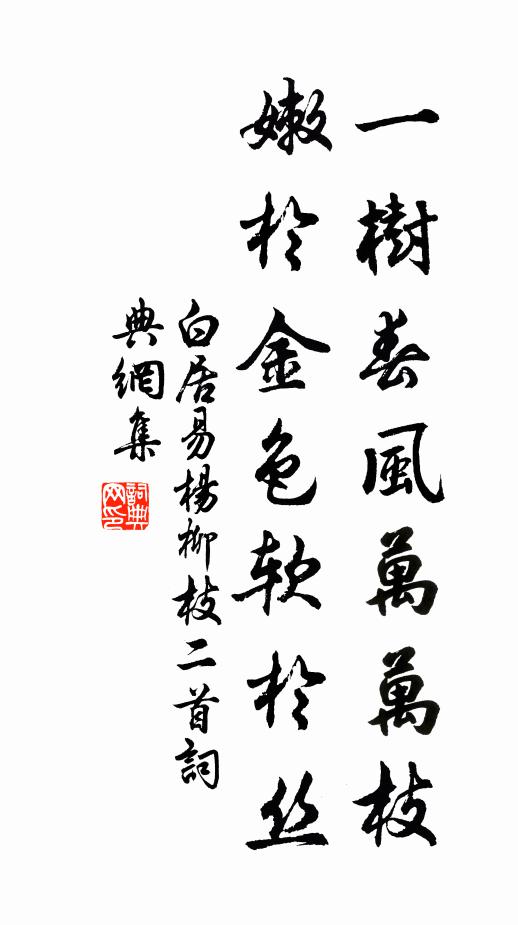 一樹春風萬萬枝
嫩於金色軟於丝
白居易楊柳枝二首詞
典網集
詞典網印